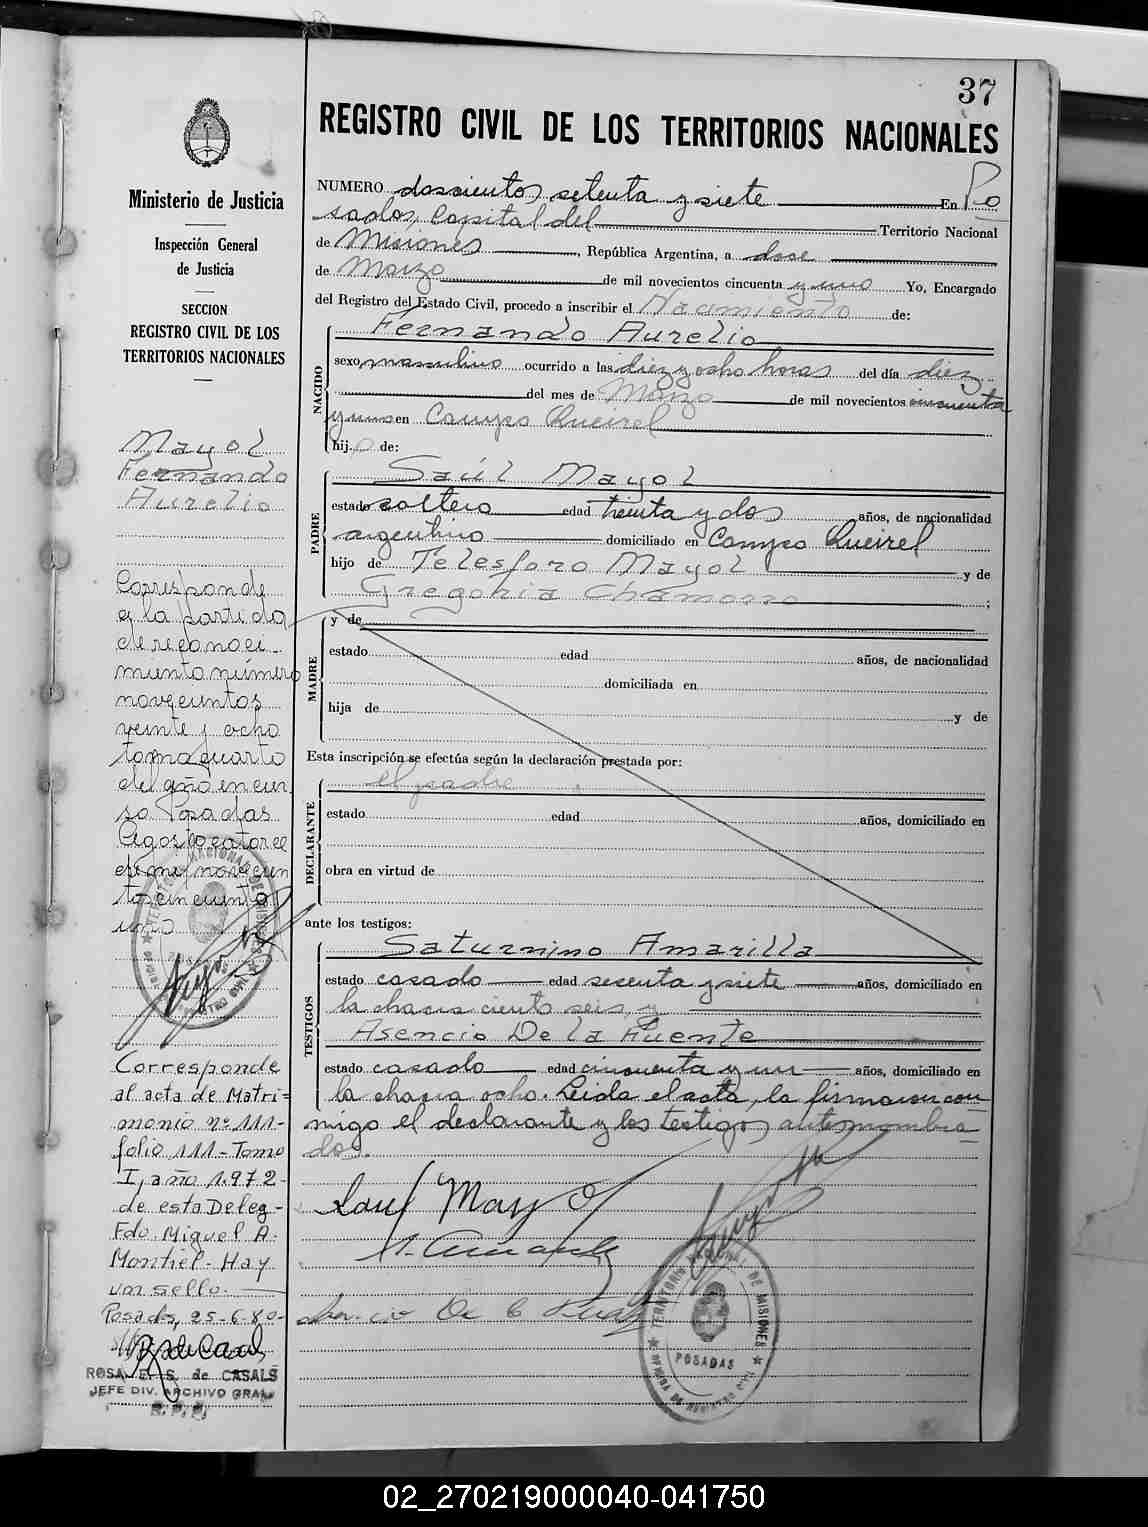 37
REGISTRO CIVIL DE LOS TERRITORIOS NACIONALES
Ministerio de Justicia
Inspección General
de Justicia
SECCION
REGISTRO CIVIL DE LOS
TERRITORIOS NACIONALES
Mayol
Fernando
Aurelio
Corresponde
a la partida
de reconoci-
miento número
novecientos
veinte y ocho
tomo cuarto
del año en cur
so Posadas
Agosto catorce
de mil novecien
tos cincuenta
uno
Corresponde
al acta de Matri=
monio nº 111-
folio 111 - Tomo
I, año 1.972-
de esta Deleg-
Fdo. Miguel A.
Montiel - Hay
un sello.
Posadas, 25-6-80-
ROSA E. S. de CASALS
JEFE DIV. ARCHIVO GRAL
R.P.P.
NUMERO doscientos setenta y siete En Po
sadas, Capital del Territorio Nacional
de Misiones, República Argentina, a doce
de Marzo de mil novecientos cincuenta y uno Yo, Encargado
del Registro del Estado Civil, procedo a inscribir el Nacimiento de:
NACIDO
Fernando Aurelio
sexo masculino ocurrido a las diez y ocho horas del día diez
del mes de Marzo de mil novecientos cincuenta
y uno en Campo Queirel
hijo de:
PADRE
Saúl Mayol
estado soltero edad treinta y dos años, de nacionalidad
argentino domiciliado en Campo Queirel
hijo de Telesforo Mayol y de
Gregoria Chamorro ;
MADRE
y de
estado edad años, de nacionalidad
domiciliada en
hija de y de
Esta inscripción se efectúa según la declaración prestada por:
DECLARANTE
el padre
estado edad años, domiciliado en
obra en virtud de
ante los testigos:
TESTIGOS
Saturnino Amarilla
estado casado edad sesenta y siete años, domiciliado en
la chacra ciento seis, y
Asencio De la Fuente
estado casado edad cincuenta y un años, domiciliado en
la chacra ocho. Leida el acta, la firmaron con
migo el declarante y los testigos antes nombra
dos.
Saul Mayol
TERRITORIO NACIONAL DE MISIONES
POSADAS
02_270219000040-041750